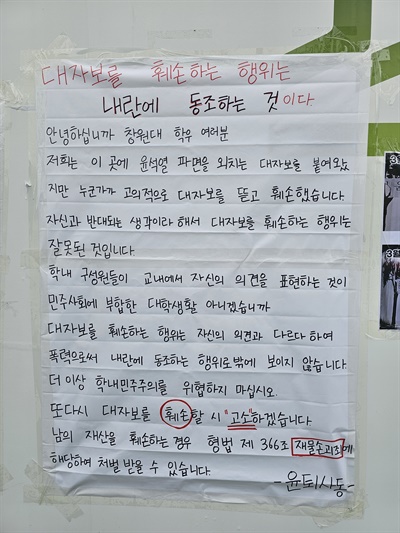 대자보를 훼손하는 행위는
내란에 동조하는 것이다
안녕하십니까 창원대 학우 여러분
저희는 이 곳에 윤석열 파면을 외치는 대자보를 붙여왔
지만 누군가가 고의적으로 대자보를 뜯고 훼손했습니다.
자신과 반대되는 생각이라 해서 대자보를 훼손하는 행위는
잘못된 것입니다.
학내 구성원들이 교내에서 자신의 의견을 표현하는 것이
민주사회에 부합한 대학생활 아니겠습니까
대자보를 훼손하는 행위는 자신의 의견과 다르다 하여
폭력으로써 내란에 동조하는 행위로밖에 보이지 않습니다.
더 이상 학내민주주의를 위협하지 마십시오.
또다시 대자보를 훼손할 시 "고소"하겠습니다.
남의 재산을 훼손하는 경우 형법 제 366조 재물손괴죄에
해당하여 처벌 받을 수 있습니다.
-윤퇴시동-